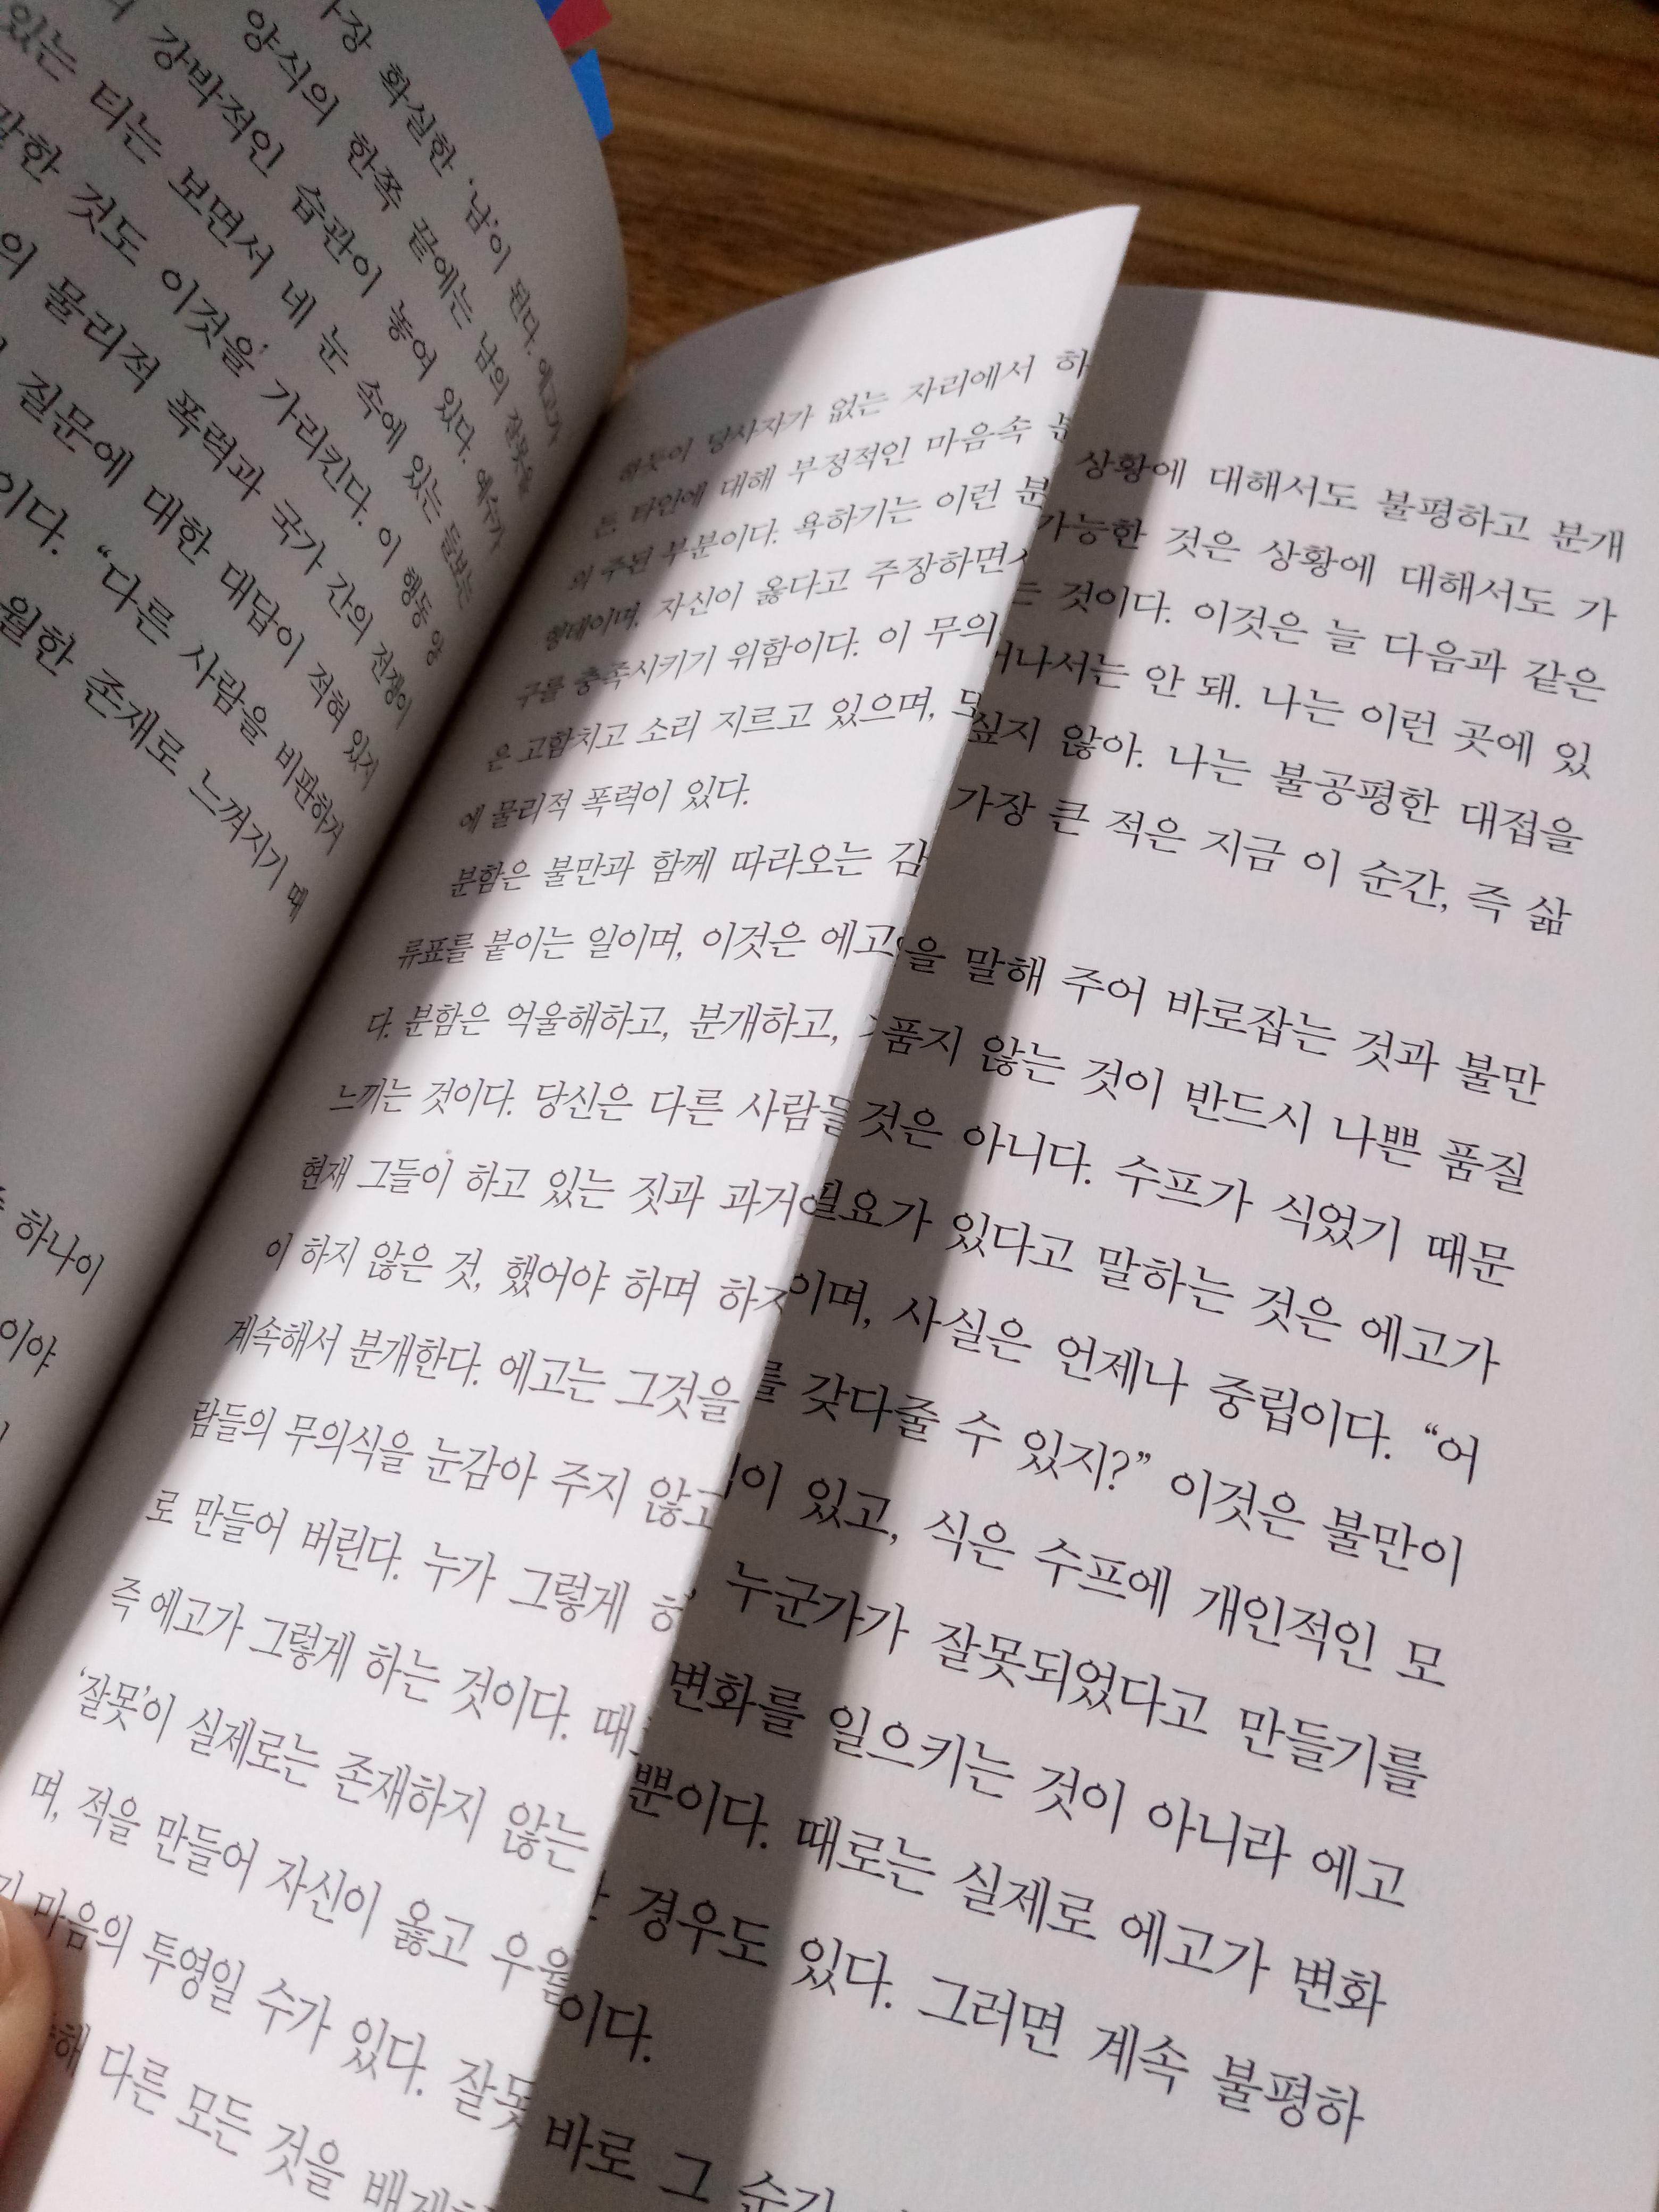 화실한 '남'이 된다. 에고가
양식의 한쪽 끝에는 남의 잘못을
강박적인 습관이 놓여 있다. 예수가
있는 티는 보면서 네 눈 속에 있는 들보는
것도 이것을 가리킨다. 이 행동 양
물리적 폭력과 국가 간의 전쟁이
질문에 대한 대답이 적혀 있지
이다. "다른 사람을 비판하거
존재로 느껴지기 때
하나이
이야
하듯이 당사자가 없는 자리에서 하
든, 타인에 대해 부정적인 마음속
의 주된 부분이다. 욕하기는 이런 분
형태이며, 자신이 옳다고 주장하면서
구를 충족시키기 위함이다. 이 무의
은 고함치고 소리 지르고 있으며,
에 물리적 폭력이 있다.
분함은 불만과 함께 따라오는 감
류표를 붙이는 일이며, 이것은 에고
다. 분함은 억울해하고, 분개하고,
느끼는 것이다. 당신은 다른 사람들
현재 그들이 하고 있는 짓과 과거
이 하지 않은 것, 했어야 하며
계속해서 분개한다. 에고는 그것을
람들의 무의식을 눈감아 주지 않고
로 만들어 버린다. 누가 그렇게
즉 에고가 그렇게 하는 것이다. 때
'잘못'이 실제로는 존재하지 않는
며, 적을 만들어 자신이 옳고 우월
마음의 투영일 수가 있다. 잘못
다른 모든 것을
상황에 대해서도 불평하고 분개
가능한 것은 상황에 대해서도 가
것이다. 이것은 늘 다음과 같은
안 돼. 나는 이런 곳에 있
싶지 않아. 나는 불공평한 대접을
가장 큰 적은 지금 이 순간, 즉 삶
을 말해 주어 바로잡는 것과 불만
품지 않는 것이 반드시 나쁜 품질
것은 아니다. 수프가 식었기 때문
필요가 있다고 말하는 것은 에고가
이며, 사실은 언제나 중립이다. "어
를 갖다줄 수 있지?" 이것은 불만이
이 있고, 식은 수프에 개인적인 모
누군가가 잘못되었다고 만들기를
변화를 일으키는 것이 아니라 에고
뿐이다. 때로는 실제로 에고가 변화
경우도 있다. 그러면 계속 불평하
이다.
바로 그 순간